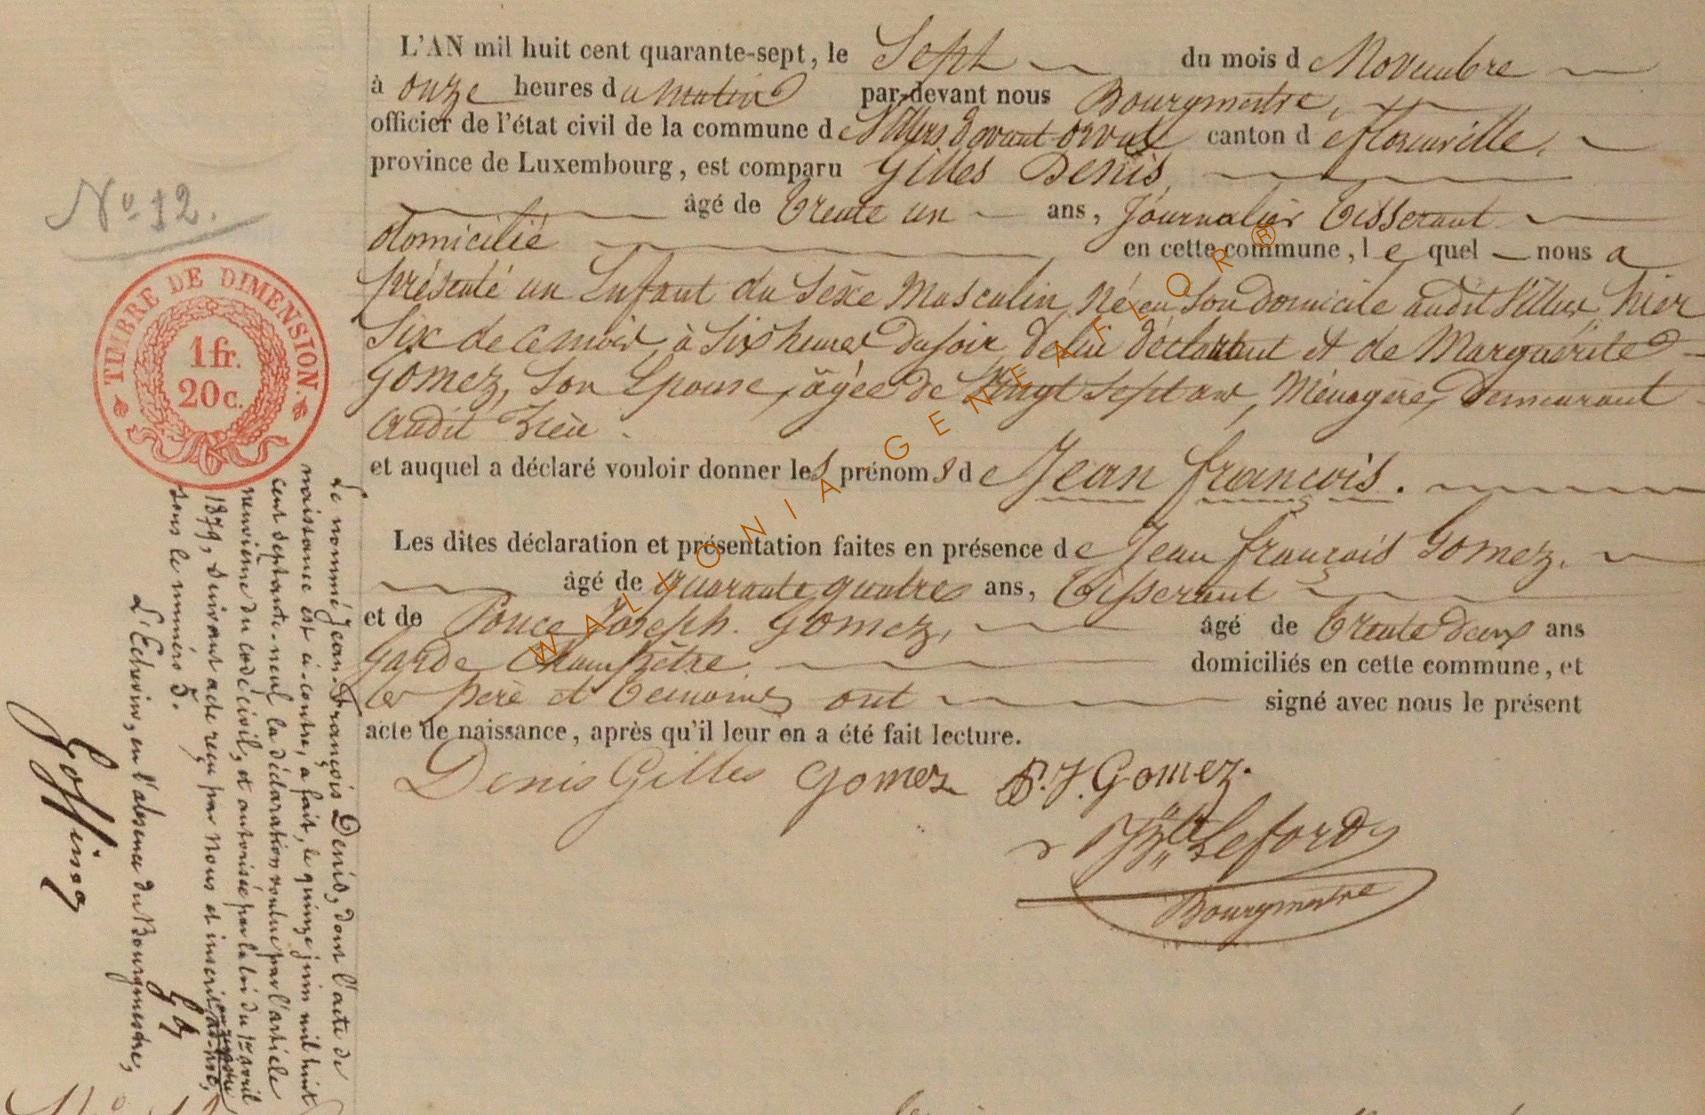 L'AN mil huit cent quarante-sept, le Sept du mois de Novembre
à onze heures du matin par-devant nous Bourgmestre,
officier de l'état civil de la commune de Villers devant orval canton de florenville,
province de Luxembourg, est comparu Gilles Denis,
âgé de trente un ans, Journalier tisserant
domicilié en cette commune, le quel nous a
présenté un Enfant du Sexe Masculin, Né en Son domicile audit Villers, hier
Six de ce mois, à Six heures du soir, de lui déclarant et de Marguerite
Gomez, Son Epouse, âgée de Vingt Sept ans, Ménagère, Demeurant
audit lieu.
et auquel a déclaré vouloir donner les prénoms de Jean françois.
Les dites déclaration et présentation faites en présence de Jean françois Gomez.
âgé de quarante quatre ans, tisserant
et de Ponce Joseph. Gomez, âgé de trente deux ans
garde Champêtre. domiciliés en cette commune, et
les père et témoins ont signé avec nous le présent
acte de naissance, après qu'il leur en a été fait lecture.
Denis Gilles Gomez P. J. Gomez.
Lefordy
Bourgmestre
No 12.
TIMBRE DE DIMENSION.
1 fr.
20 c.
Le nommé Jean-François Denis, dont l'acte de
naissance est ci-contre, a fait, le quinze juin mil huit
cent septante-neuf la déclaration voulue par l'article
neuvième du code civil, et autorisée par la loi du 1er avril
1879, suivant acte reçu par nous et inscrit
sous le numéro 5.
L'Echevin, en l'absence du Bourgmestre,
Goffinea
WALLONIA GENEAFLOR ®